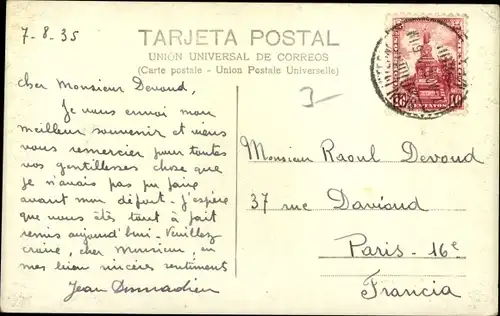 7-8-35
TARJETA POSTAL
UNIÓN UNIVERSAL DE CORREOS
(Carte postale - Union Postale Universelle)
3-
cher Monsieur Devoud,
Je vous envoi mon
meilleur souvenir et veux
vous remercier pour toutes
vos gentillesses chose que
je n'avais pas pu faire
avant mon départ. J'espère
que vous êtes tout à fait
remis aujourd'hui. Veuillez
croire, cher Monsieur, en
mes bien sincères sentiments
Jean
Monsieur Raoul Devoud
37 rue Davioud
Paris - 16e
Francia
10 CENTAVOS 10